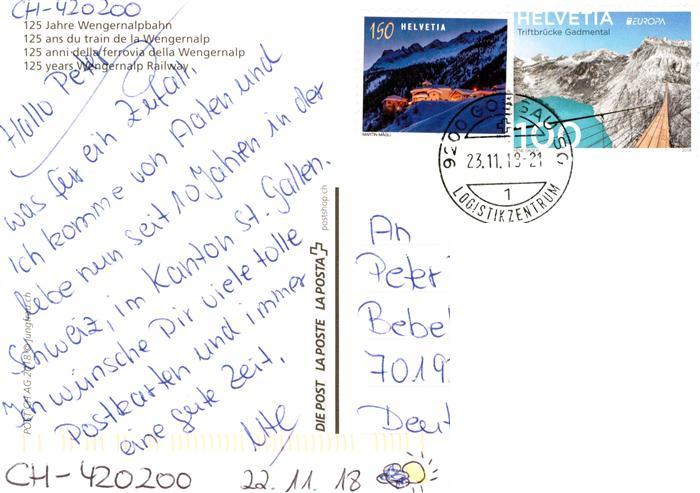 CH-420200
125 Jahre Wengernalpbahn
125 ans du train de la Wengernalp
125 anni della ferrovia della Wengernalp
125 years Wengernalp Railway
Hallo Peter
was für ein Zufall.
Ich komme von Aalen und
lebe nun seit 10 Jahren in der
Schweiz, im Kanton St. Gallen.
Ich wünsche Dir viele tolle
Postkarten und immer
eine gute Zeit.
Ute
CH-420200 22.11.18
POST CH AG 2018 © jungfrau.ch
DIE POST LA POSTE LA POSTA
postshop.ch
150 HELVETIA
MARTIN MÄGLI
HELVETIA EUROPA
Triftbrücke Gadmental
100
9200 GOSSAU SG
23.11.18-21
1
LOGISTIKZENTRUM
An
Peter
Bebel
7019
Deut